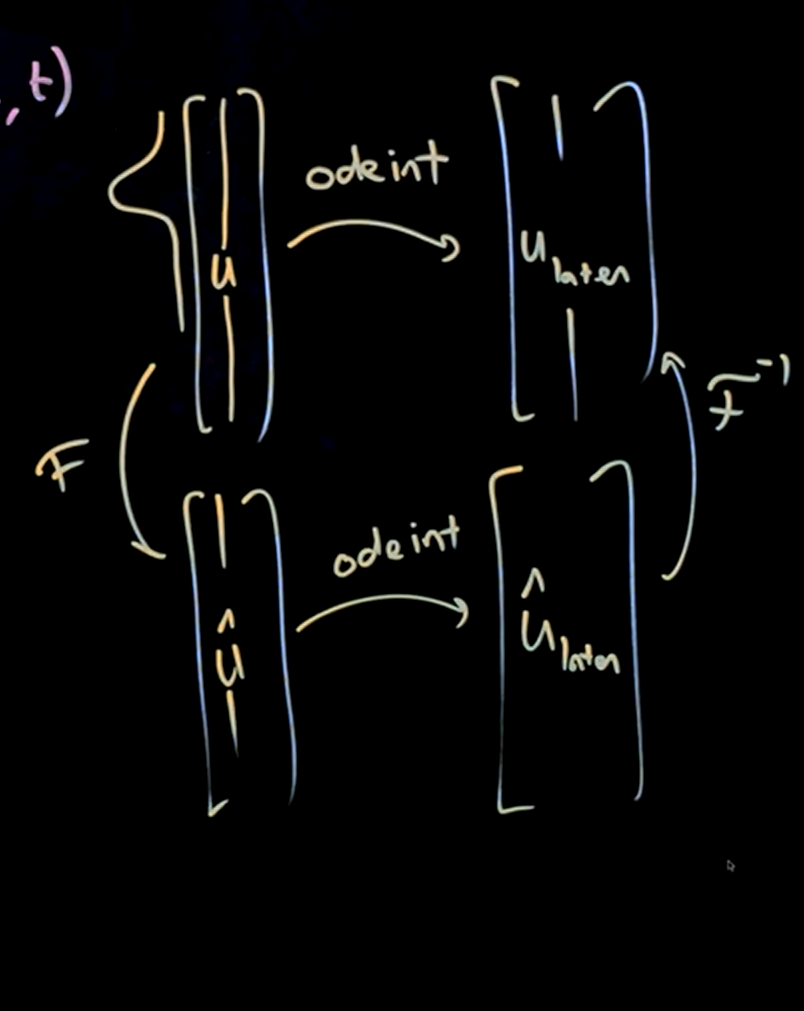 , t)
odeint
u
u later
F
F⁻¹
odeint
û
û later